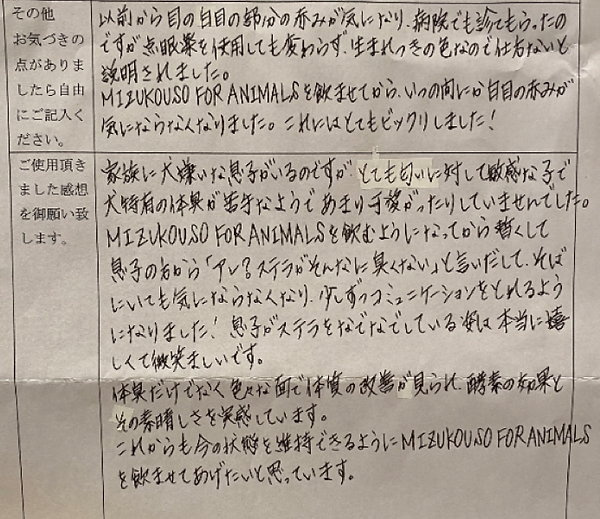 その他
お気づきの
点がありま
したら自由
にご記入く
ださい。
以前から目の白目の部分の赤みが気になり、病院でも診てもらったの
ですが点眼薬を使用しても変わらず、生まれつきの色なので仕方ないと
説明されました。
MIZUKOUSO FOR ANIMALSを飲ませてから、いつの間にか白目の赤みが
気にならなくなりました。これにはとてもビックリしました!
ご使用頂き
ました感想
を御願い致
します。
家族に犬嫌いな息子がいるのですが、とても匂いに対して敏感な子で
犬特有の体臭が苦手なようであまり可愛がったりしていませんでした。
MIZUKOUSO FOR ANIMALSを飲むようになってから暫くして
息子の方から「アレ?ステラがそんなに臭くない」と言いだして、そば
にいても気にならなくなり、少しずつコミュニケーションをとれるよう
になりました!息子がステラをなでなでしている姿は本当に嬉
しくて微笑ましいです。
体臭だけでなく色々な面で体質の改善が見られ、酵素の効果と
その素晴しさを実感しています。
これからも今の状態を維持できるようにMIZUKOUSO FOR ANIMALS
を飲ませてあげたいと思っています。